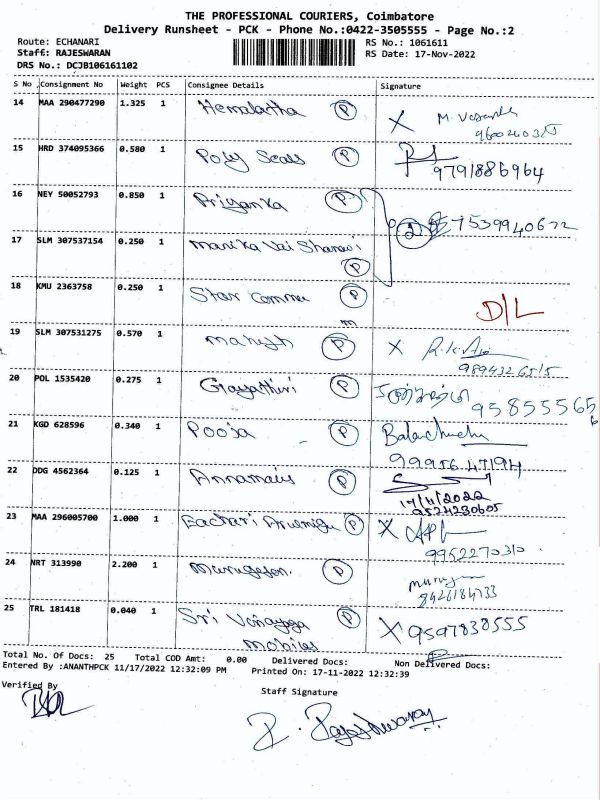 THE PROFESSIONAL COURIERS, Coimbatore
Delivery Runsheet - PCK - Phone No.:0422-3505555 - Page No.:2
Route: ECHANARI
RS No.: 1061611
Staff: RAJESWARAN
RS Date: 17-Nov-2022
DRS No.: DCJB106161102
S No Consignment No Weight PCS Consignee Details Signature
14 MAA 290477290 1.325 1 Hemalatha P X M.
15 HRD 374095366 0.580 1 Poly Seals P
9791886964
16 NEY 50052793 0.850 1 Priyanka P
2 7539940672
17 SLM 307537154 0.250 1 Manika Vai Sharavi
P
18 KMU 2363758 0.250 1 Star Comme P
D/L
19 SLM 307531275 0.570 1 Mahesh P X
9894326515
20 POL 1535420 0.275 1 Gayathiri P
21 KGD 628596 0.340 1 Pooja P
22 DDG 4562364 0.125 1 Annamais P
17/11/2022
9524280605
23 MAA 296005700 1.000 1 P X
9952270310
24 NRT 313990 2.200 1 Murugesan. P
8426184733
25 TRL 181418 0.040 1 Sri Vinayaga P X 9597838555
Mobiles
Total No. Of Docs: 25 Total COD Amt: 0.00 Delivered Docs: Non Delivered Docs:
Entered By :ANANTHPCK 11/17/2022 12:32:09 PM Printed On: 17-11-2022 12:32:39
Verified By
Staff Signature
R. Rajeshwaran